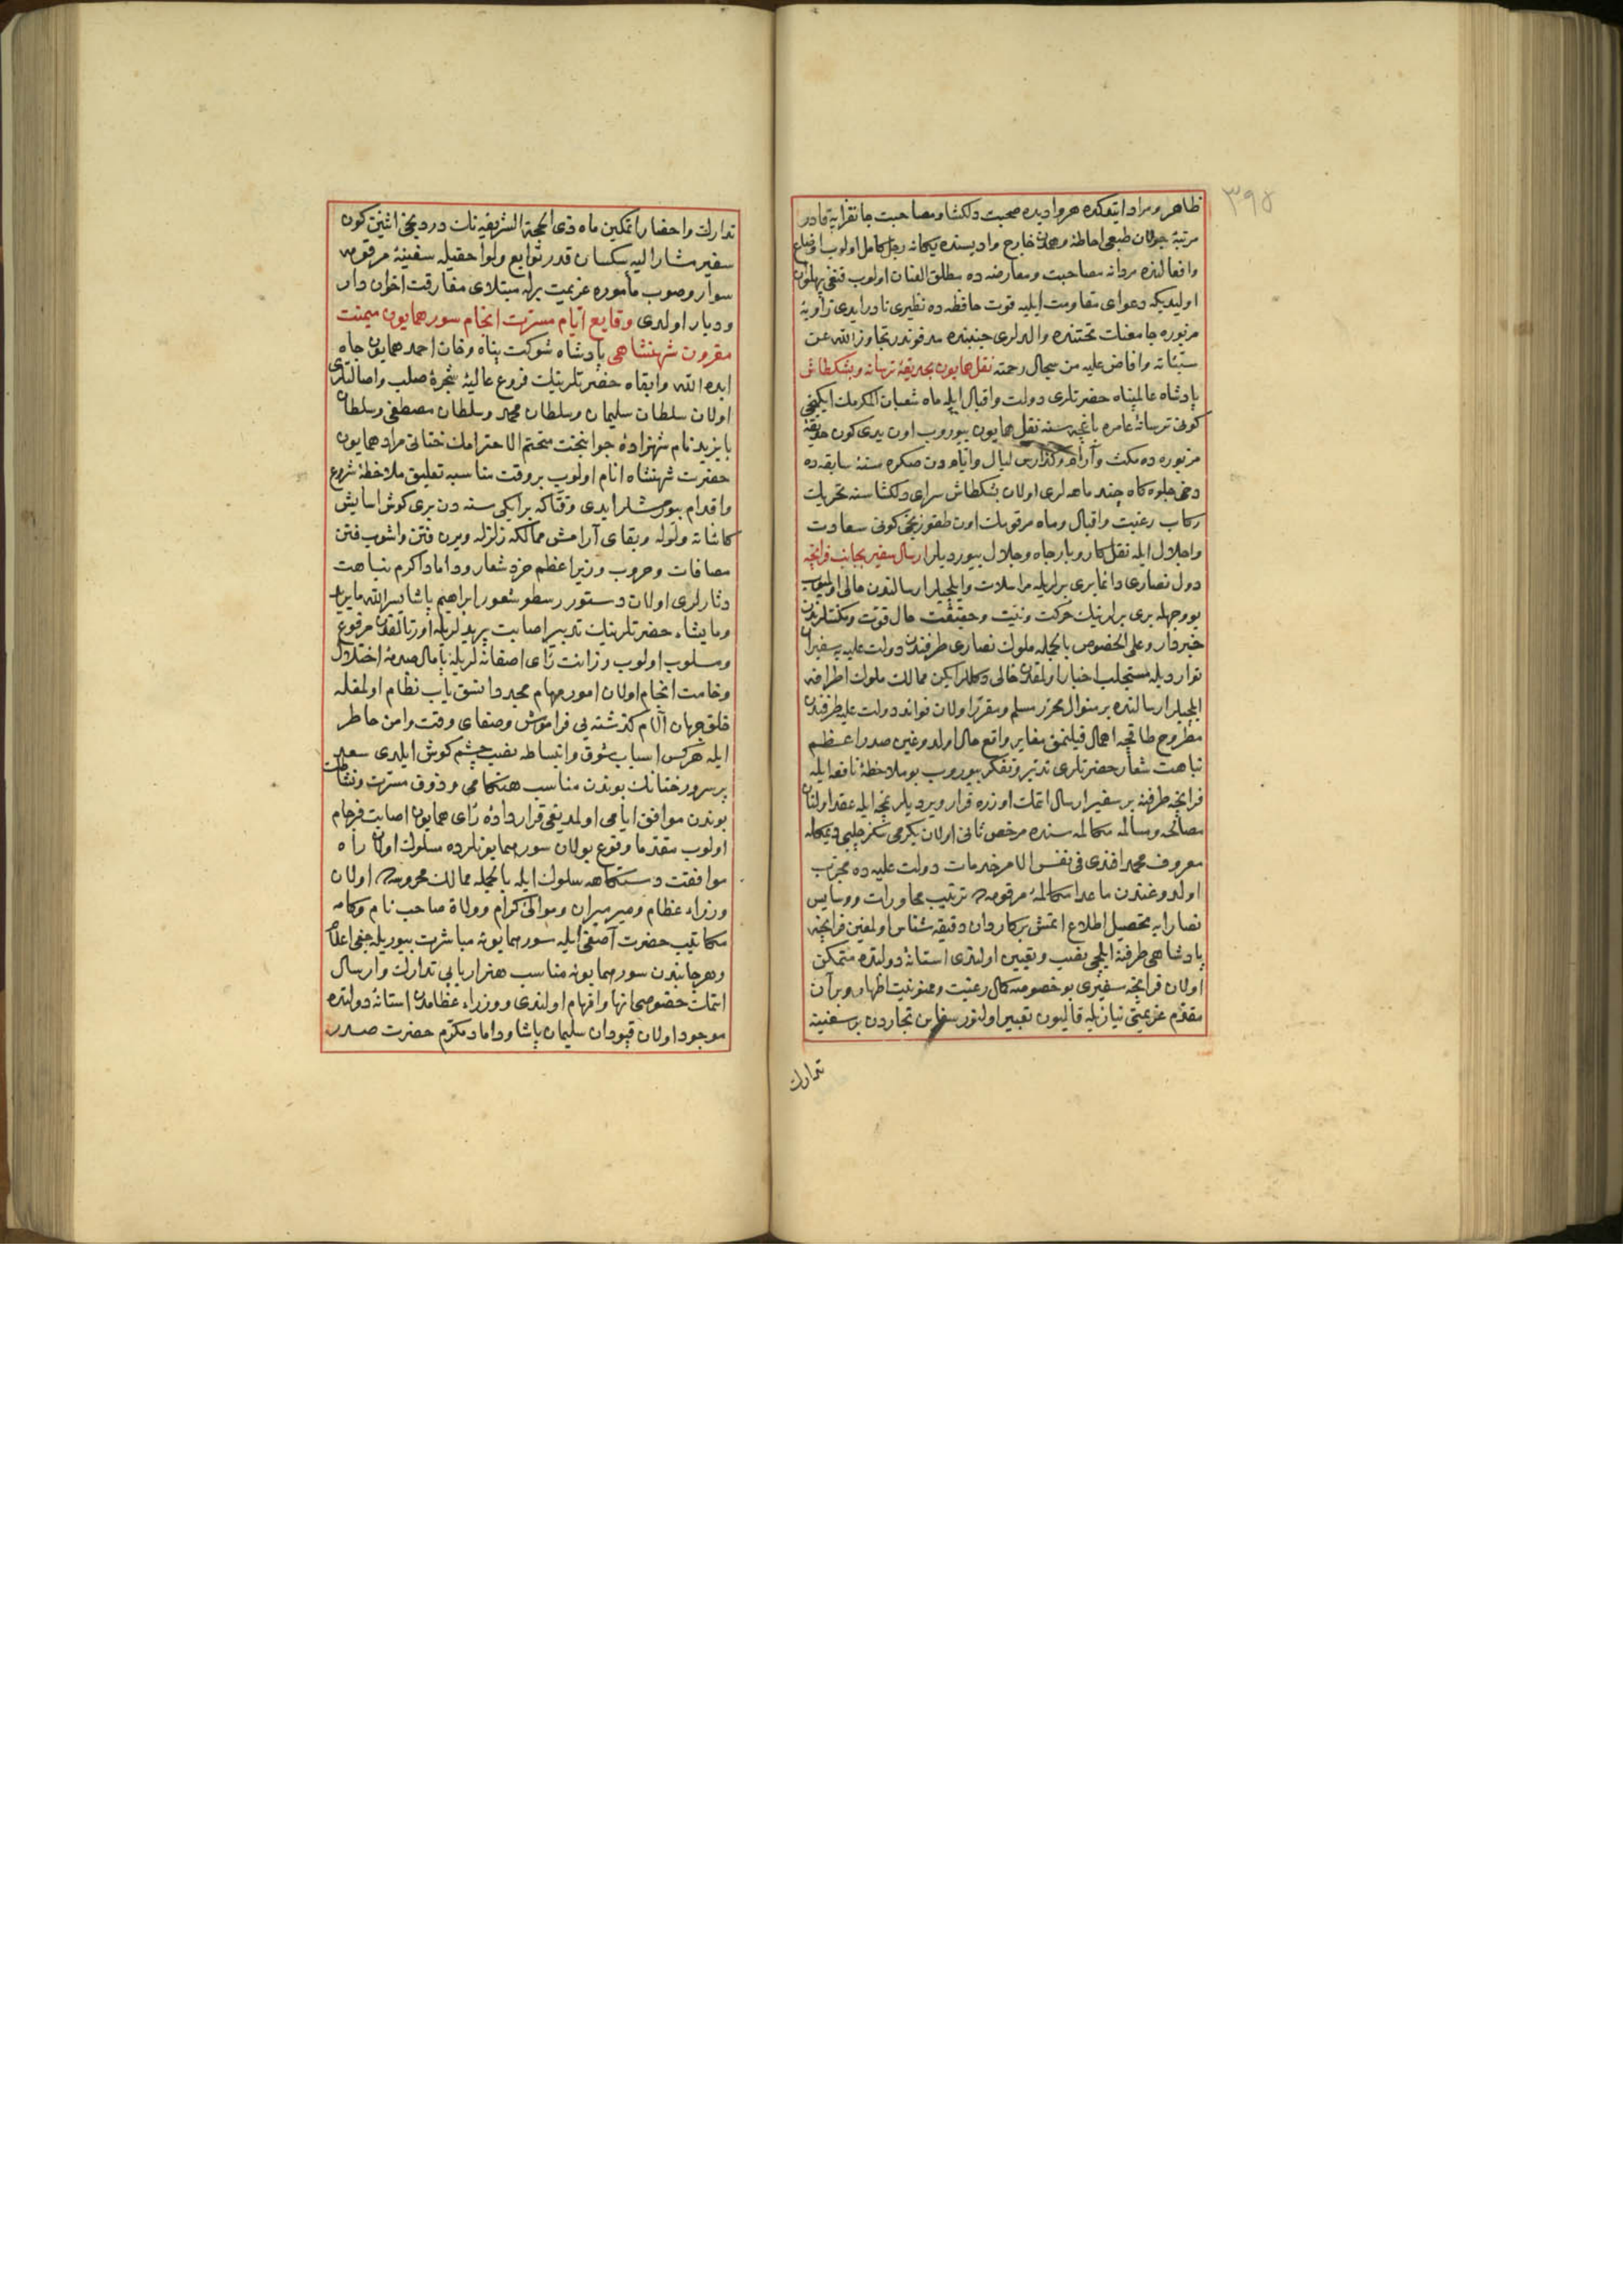 ٣٩٨
ظاهر ومراد ايتدكده هر واديده صحبت دلكشا ومصاحبت جانفزايه قادر
مرتبهٔ جولان طبعى احاطهٔ خارج واديسنده يكانه رجل كامل اولوب اوضاع
وافعالنده مردانه مصاحبت ومعارضه ده مطلق العنان اولوب قنغى پهلوان
اوليديكه دعواى مقاومت ايليه قوت حافظه ده نظيرى نادر ايدى زاويهٔ
مزبوره جامعنك تحتنده والدلرى جنبنده مدفوندر تجاوز الله عن
سيئاته وافاض عليه من سجال رحمته نقل همايون بحديقهٔ ترسانه وبشكطاش
پادشاه عالمپناه حضرتلرى دولت واقبال ايله ماه شعبان المكرمك ايكنجى
كونى ترسانهٔ عامره باغچه سنه نقل همايون بيوروب اون يدى كون حديقهٔ
مزبوره ده مكث وآرام وكذارش ليال وايامدن صكره سنهٔ سابقه ده
دخى جلوه كاه چند ماهه لرى اولان بشكطاش سراى دلكشاسنه تحريك
ركاب رغبت واقبال وماه مرقومك اون طقوزنجى كونى سعادت
واجلال ايله نقل كاروبار جاه وجلال بيورديلر ارسال سفير بجانب فرانچه
دول نصارى دائما برى برلريله مراسلات وايلچيلر ارسالندن خالى اولميوب
بو وجهله برى برلرينك حركت ونيت وحقيقت حال قوت ومكنتلرندن
خبردار وعلى الخصوص بالجمله ملوك نصارى طرفندن دولت عليه يه سفيران
توارديله مستجلب اخبار اولمقدن خالى دكللر ايكن ممالك ملوك اطرافه
ايلچيلر ارسالنده بر منوال محرر مسلم ومقرر اولان فوائد دولت عليه طرفندن
مطروح طاقچهٔ اهمال قيلنمق مغاير واقع حال اولدوغين صدر اعظم
نباهت شعار حضرتلرى تدبر وتفكر بيوروب بو ملاحظهٔ نافعه ايله
فرانچه طرفنه بر سفير ارسال اتمك اوزره قرار ويرديلر نمچه ايله عقد اولنان
مصالحه ومسالمه مكالمه سنده مرخص ثانى اولان يكرمى سكز چلبى ديمكله
معروف محمد افندى فى نفس الامر خدمات دولت عليه ده مجرب
اولدوغندن ماعدا مكالمهٔ مرقومه ده ترتيب محاورات ودسايس
نصارايه تحصيل اطلاع اتمش بر كاردان دقيقه شناس اولمغين فرانچه
پادشاهى طرفنه ايلچى نصب وتعيين اولندى استانهٔ دولتده متمكن
اولان فرانچه سفيرى بو خصوصه كمال رغبت وممنونيت اظهار وبر آن
مقدم عزيمتى نيازيله قاليون تعبير اولنور سفاين تجاردن بر سفينه
تدارك
تدارك واحضار اتمكين ماه ذى الحجة الشريفه نك دردنجى اثنين كون
سفير مشار اليه سكسان قدر توابع ولواحقيله سفينهٔ مرقومه
سوار وصوب مأموره عزيمت برله مبتلاى مفارقت اخوان دار
وديار اولدى وقايع ايام مسرت انجام سور همايون ميمنت
مقرون شهنشاهى پادشاه شوكت پناه وخان احمد همايون جاه
ايده الله وابقاه حضرتلرينك فروع عاليهٔ شجرهٔ صلب واصالتلرى
اولان سلطان سليمان وسلطان محمد وسلطان مصطفى وسلطان
بايزيد نام شهزادهٔ جوانبخت متحتم الاحترامك ختانى مراد همايون
حضرت شهنشاه انام اولوب بر وقت مناسبه تعليق ملاحظهٔ شروع
واقدام بيورمشلر ايدى وقتاكه بر ايكى سنه دن برى كوش اسايش
كاشانه ولوله وبقاى آرامش ممالكه زلزله ويرن فتن واشوب فتن
مصافات وحروب وزير اعظم خرد شعار وداماد اكرم نباهت
دثارلرى اولان دستور رسطو شعور ابراهيم پاشا يسر الله ما يريد
وما يشاء حضرتلرينك تدبير اصابت پذيرلريله اورتالقدن مرفوع
ومسلوب اولوب ورزانت رأى اصفانه لريله پامال صدمهٔ اختلال
وخامت انجام اولان امور مهام مجددا نسق ياب نظام اولمغله
خلق جهان آلام كذشته يى فراموش وصفاى وقت وامن خاطر
ايله هركس اسباب شوق وانبساطه نصب چشم كوش ايلدى سعد
پرسرور ختانك بوندن مناسب هنكامى وذوق مسرت ونشاطك
بوندن موافق ايامى اولمديغى قراردادهٔ رأى همايون اصابت فرجام
اولوب مقدما وقوع بولان سور همايونلرده مسلوك اولان راه
موافقت دستكاهه سلوك ايله بالجمله ممالك محروسه ده اولان
وزراء عظام ومير ميران وموالئ كرام وولاة صاحب نام وكامه
مكاتيب حضرت آصفى ايله سور همايونه مباشرت بيوريله جغى اعلام
وهر جانبدن سور همايونه مناسب هنر اربابى تدارك وارسال
اتمك خصوصى انها وافهام اولندى ووزراء عظامدن استانهٔ دولتده
موجود اولان قپودان سليمان پاشا وداماد مكرم حضرت صدر